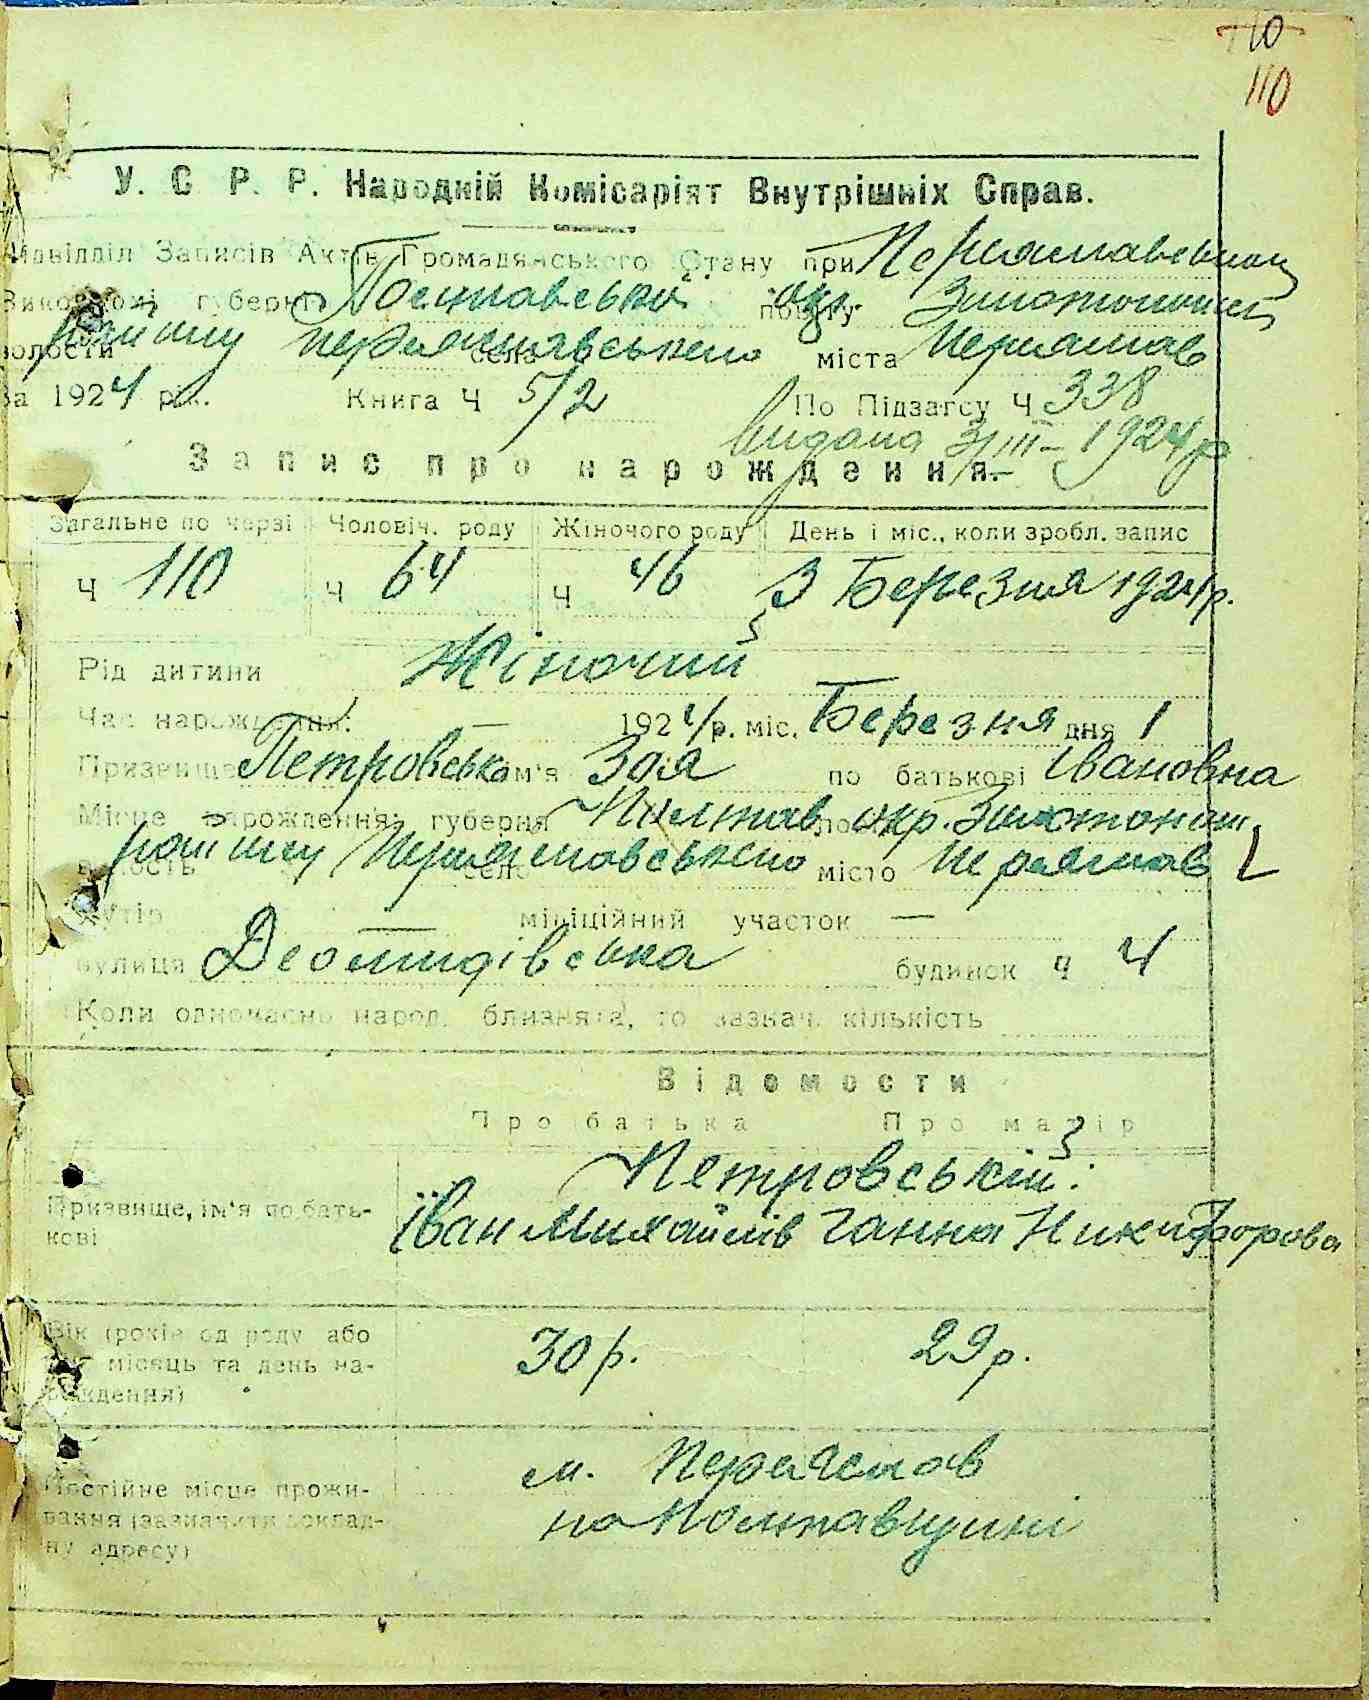 110
110
У. С. Р. Р. Народній Комісаріят Внутрішніх Справ.
Підвідділ Записів Актів Громадянського Стану при Переяславському
Виконкомі губерні Полтавської окр. повіту Золотоноській
волости району Переяславського село міста Переяслав
За 1924 рік. Книга Ч 5/2 По Підзагсу Ч 338
видана 3/III-1924 р
Запис про нарождення.
Загальне по черзі Чоловіч. роду Жіночого роду День і міс., коли зробл. запис
Ч 110 Ч 64 Ч 46 3 Березня 1924 р.
Рід дитини Жіночий
Час нарождення: — 1924 р. міс. Березня дня 1
Призвище Петровська ім'я Зоя по батькові Івановна
Місце нарождення: губерня Полтав. окр. Золотонош.
волость району Переяславського село місто Переяслав
хутір — міліційний участок —
вулиця будинок ч 4
Коли одночасно народ. близнята, то зазнач. кількість
Відомости
Про батька Про матір
Петровській:
Призвище, ім'я по бать-
кові Іван Михайлів Ганна Никифорова
Вік (років од роду або
рік місяць та день на-
рождення) 30 р. 29 р.
Постійне місце прожи-
вання (зазначити доклад-
ну адресу) м. Переяслав
на Полтавщині